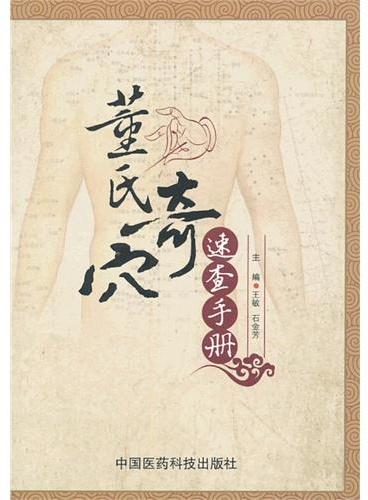 董氏奇穴
速查手册
主 编 王敏 石金芳
中国医药科技出版社